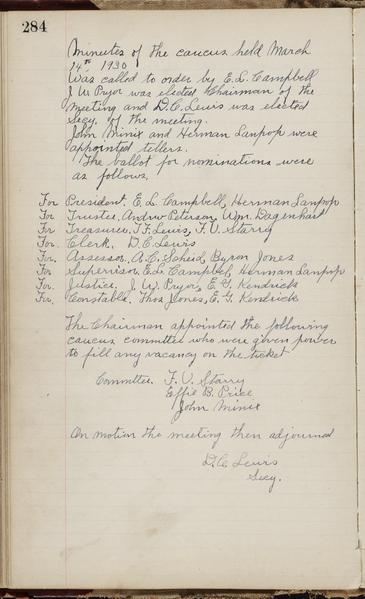 284
Minutes of the caucus held March
14th 1930
Was called to order by E.L. Campbell
J.W. Pryor was elected Chairman of the
meeting and D.C. Lewis was elected
Secy. of the meeting.
John Minix and Herman Lanpop were
appointed tellers.
The ballot for nominations were
as follows.
For President. E.L. Campbell, Herman Lanpop
For Trustee. Andrew Peterson, Wm. Dagenhart
For Treasurer. T.F. Lewis, F.V. Starry
For. Clerk. D.C. Lewis
For. Assessor. A.C. Scheid, Byron Jones
For Supervisor. E.L. Campbel, Herman Lanpop
For. Justice. J.W. Pryor, E.G. Kendricks
For. Constable. Thos Jones, E.G. Kendrick
The Chairman appointed the following
caucus committee who were given power
to fill any vacancy on the ticket
Committee. F.V. Starry
Effie B. Price
John Minix
On motion the meeting then adjourned
D.C. Lewis
Secy.